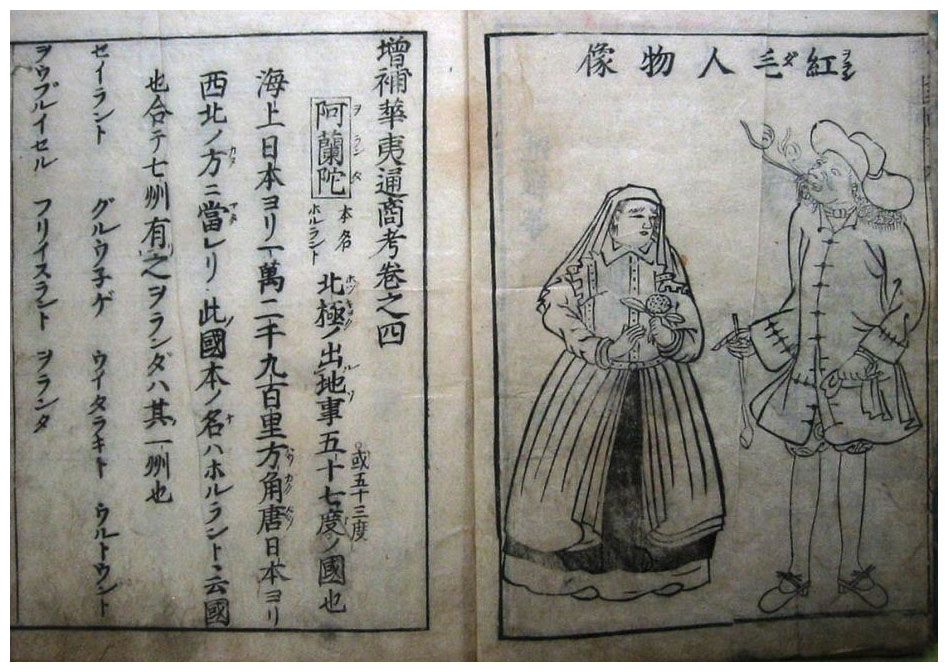 紅毛人物像
増補華夷通商考巻之四
阿蘭陀 本名ホルラント 北極ノ出地事五十七度ノ國也 或五十三度
海上日本ヨリ一萬二千九百里方角唐日本ヨリ
西北ノ方ニ當レリ此國本ノ名ハホルラントヽ云國
也合テ七州有之ヲランダハ其一州也
セイラント グルウ子ゲ ウイタラキト ウルトウント
ヲウプルイセル フリイスラント ヲランタ